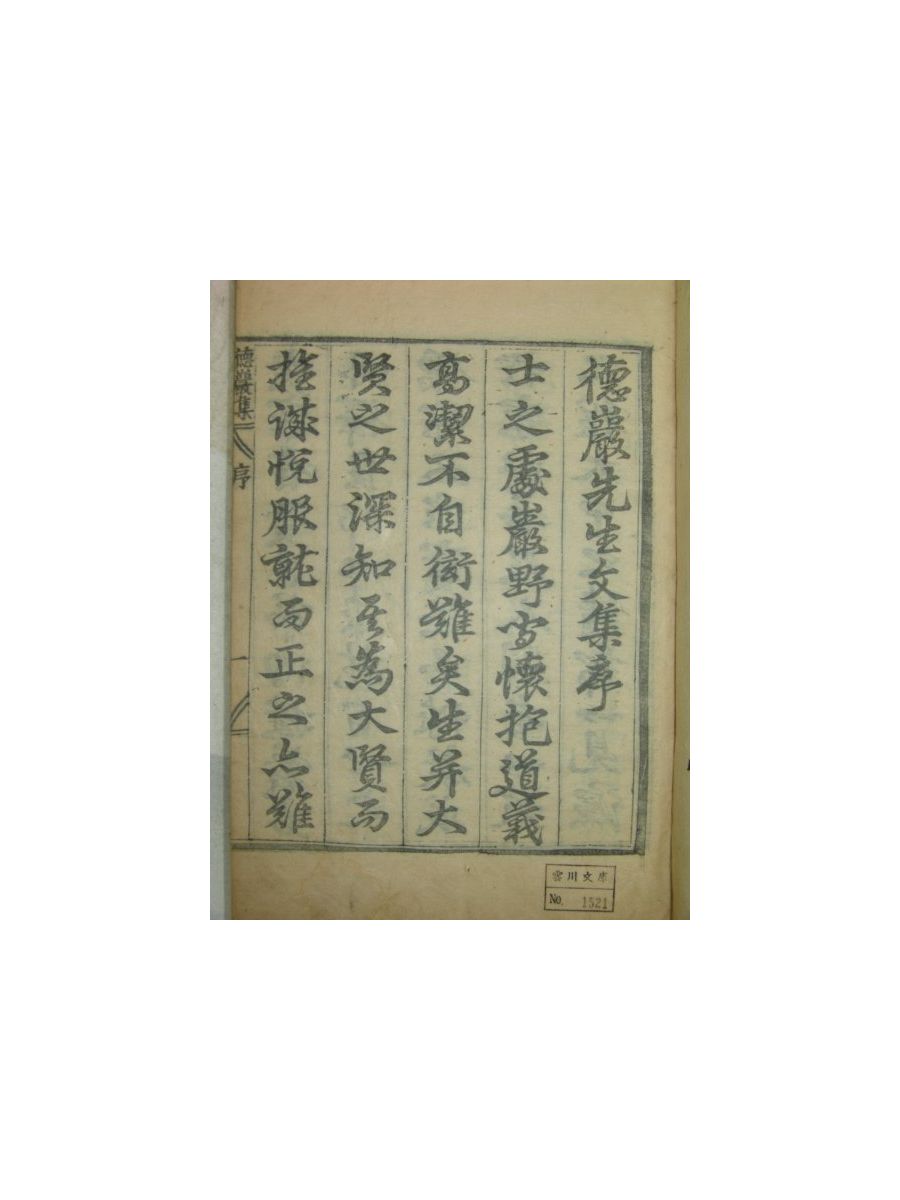 德巖先生文集序
士之處巖野守懷抱道義
高潔不自衒難矣生并大
賢之世深知其爲大賢而
推誠悅服就而正之亦難
德巖集
序
一
雲川文庫
No. 1521